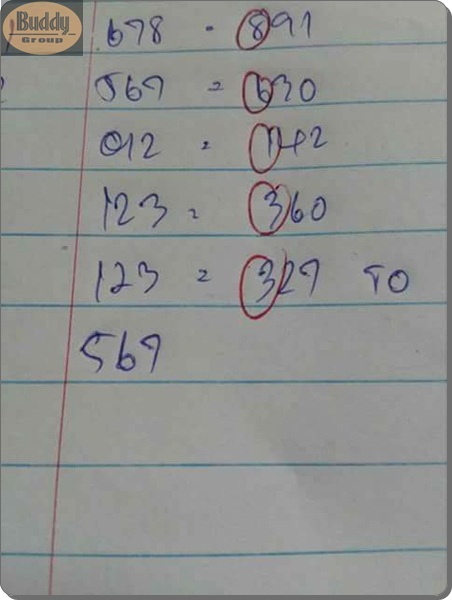 Buddy
Group
678 = 891
567 = 630
012 = 142
123 = 360
123 = 327 TO
567